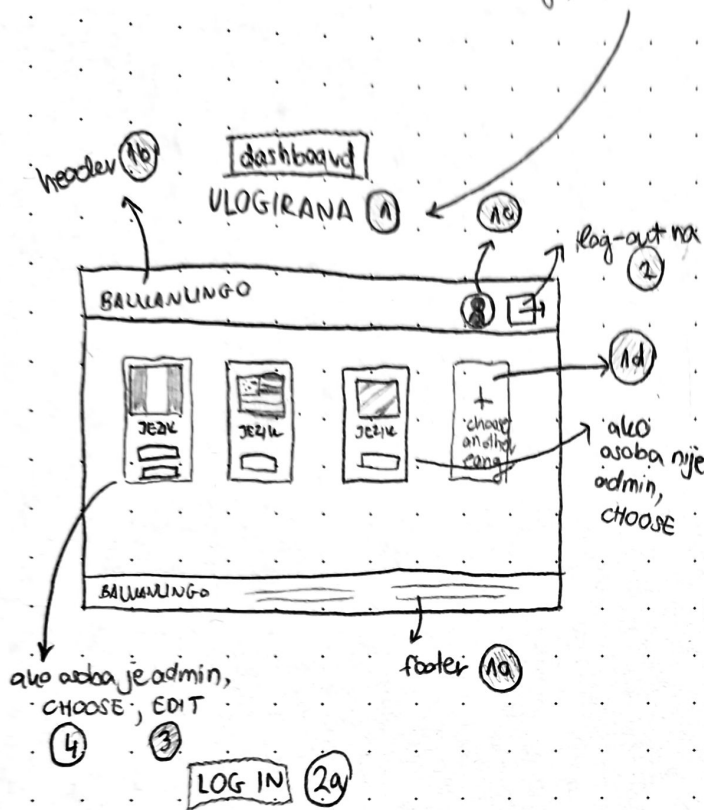 dashboard
header 1b
ULOGIRANA 1
1c
log-out na
2
BALKANLINGO
1d
JEZIK
JEZIK
JEZIK
+
choose
another
lang
ako
osoba nije
admin,
CHOOSE
BALKANLINGO
footer 1a
ako osoba je admin,
CHOOSE, EDIT
4 3
LOG IN 2a